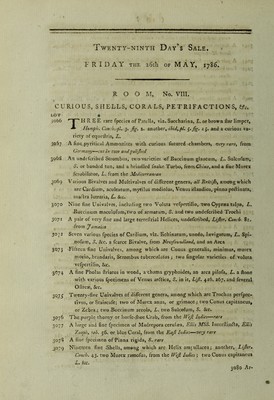 TWENTY-NINTH DAY's SALE.
FRIDAY THE 26th OF MAY, 1786.
ROOM, No. VIII.
CURIOUS, SHELLS, CORALS, PETRIFACTIONS, &c.
LOT
3066 THREE rare species of Patella, viz. Saccharina, L. or brown star limpet,
another, and a curious va-
riety of
3067 A fine pyritical Ammonites with curious sutured chambers, very rare, from
Germany—cut in two and polished
3068 An undescribed Strombus, two varieties of Buccinum glaucum, L. Sulcosum,
S. or banded ton, and a brindled snake Turbo, from China, and a fine Murex
L. from the Mediterranean
3069 Various Bivalves and Multivalves of different genera, all British, among which
are Cardium, aculeatum, mytilus modiolus, Venus islandica, pinna pectinata,
mactra lutraria, L. &c.
3070 Nine fine Univalves, including two Voluta vespertilio, two Cypræa talpa, L.
Buccinum maculosum, two of
3071 A pair of very fine and large terrestrial Helices, undescribed, Lister, Conch. 81.
from Jamaica
3072 Seven various species of Cardium, viz. L. Spi-
S. &c. a scarce Bivalve, from Newfoundland, and an Arca
3073 Fifteen fine Univalves, among which are Conus generalis, minimus, murex
Strombus tuberculatus; two singular varieties of voluta
vespertilio, &c.
3074 A fine Pholas striatus in wood, a chama gryphoides, an arca pilosa, L. a
with various specimens of Venus S. in it, List. 426. 267. and several
&c.
3075 Twenty-five Univalves of different genera, among which are Trochus perspec-
tivus, or Staircase; two of Murex anus, or grimace; two Conus capitaneus,
or Zebra; two Buccinum areola, L. two Sulcosum, S. &c.
3076 The purple thorny or horse-shoe Crab, from the West Indies
3077 A large and fine specimen of Madrepora Ellis
tab. 56. or blue Coral, from the East Indies—very rare
3078 A fine specimen of Pinna rigida, S. rare
3079 Nineteen fine Shells, among which are Helix another, Lister,
Conch. 43. two Murex ramosus, from the West Indies; two Conus capitaneus
L. &c.
3080 A